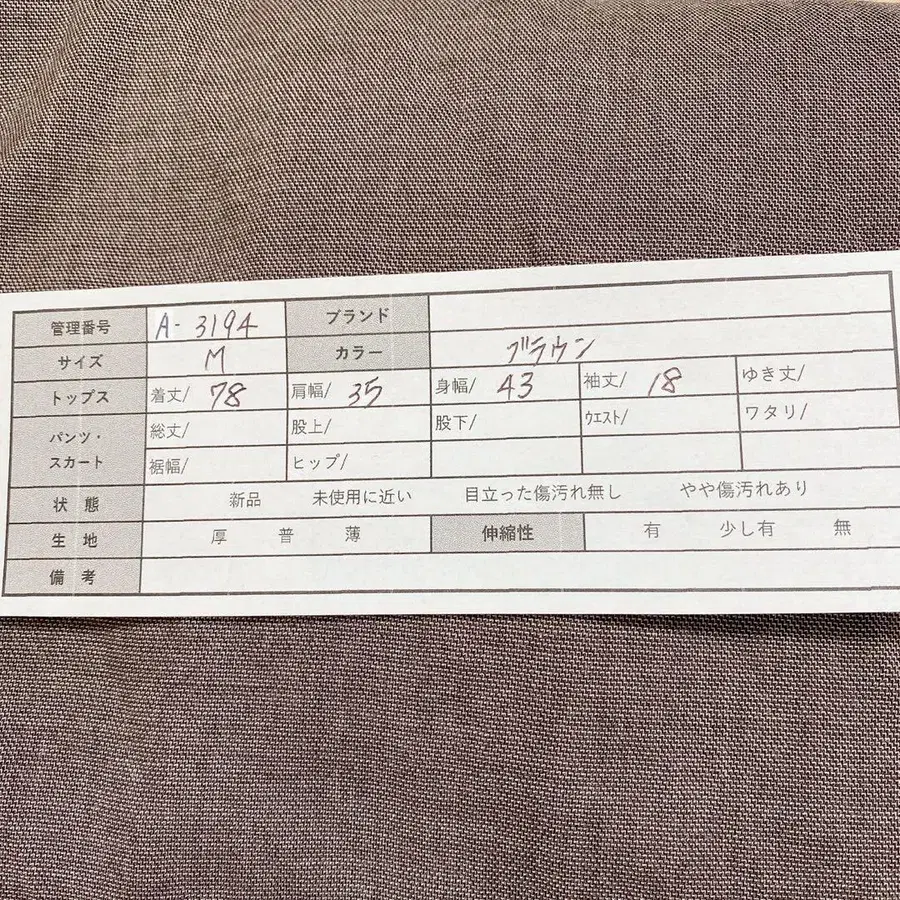 管理番号 A-3194 ブランド
サイズ M カラー ブラウン
トップス 着丈/ 78 肩幅/ 35 身幅/ 43 袖丈/ 18 ゆき丈/
パンツ・スカート 総丈/ 股上/ 股下/ ウエスト/ ワタリ/
裾幅/ ヒップ/
状 態 新品 未使用に近い 目立った傷汚れ無し やや傷汚れあり
生 地 厚 普 薄 伸縮性 有 少し有 無
備 考